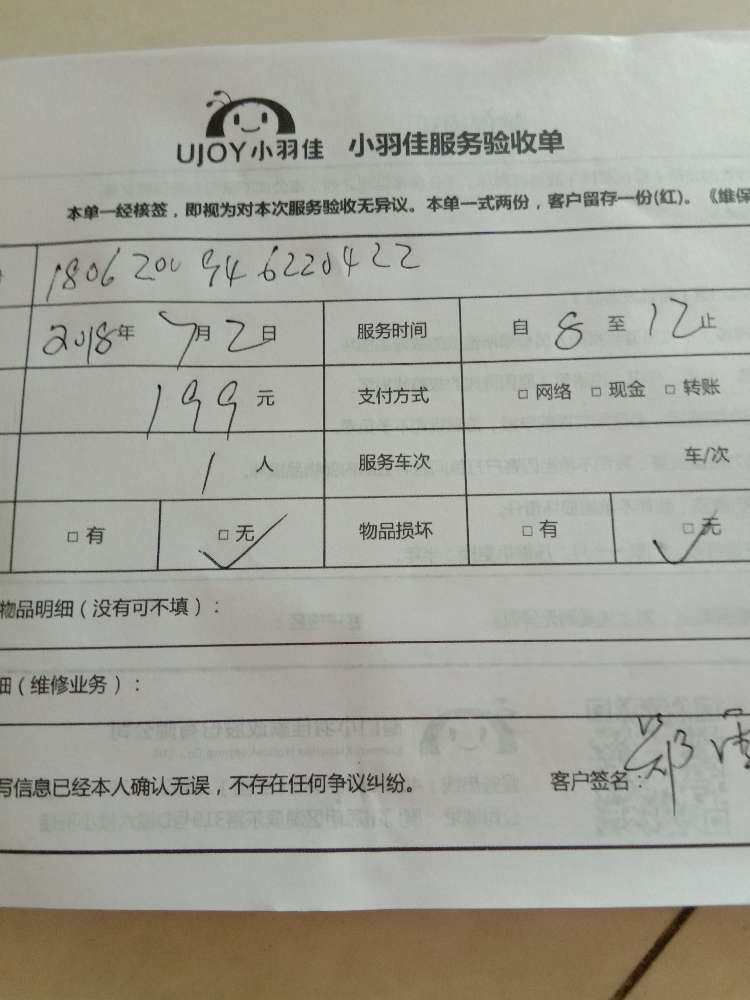 UJOY小羽佳 小羽佳服务验收单
本单一经核签，即视为对本次服务验收无异议。本单一式两份，客户留存一份(红)。《维保
1806200946220422
2018年 7月2日 服务时间 自 8 至 12 止
199 元 支付方式 □ 网络 □ 现金 □ 转账
1 人 服务车次 车/次
□ 有 □ 无 物品损坏 □ 有 □ 无
物品明细（没有可不填）：
细（维修业务）：
写信息已经本人确认无误，不存在任何争议纠纷。 客户签名：郑